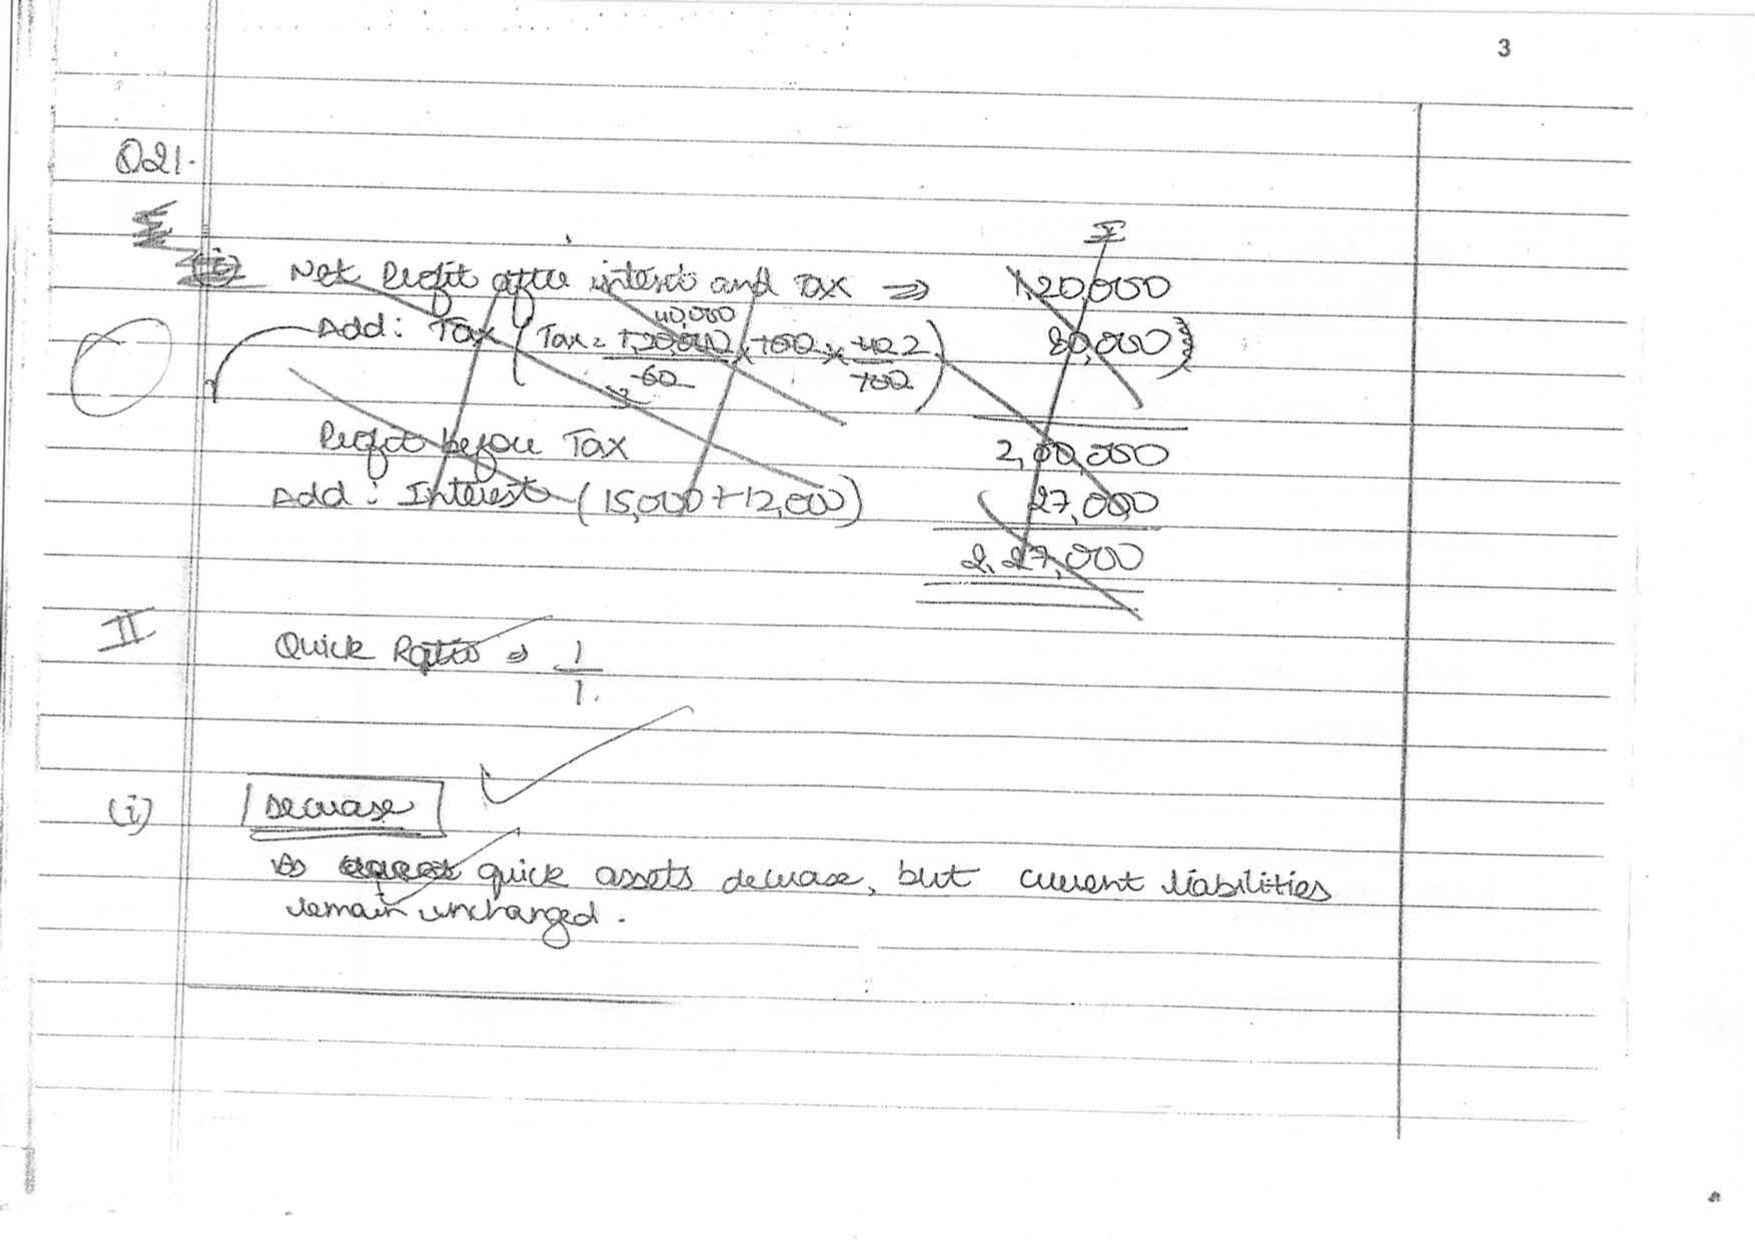 3
Q21.
₹
(i) Net Profit after interest and Tax ⇒ 1,20,000
40,000
Add: Tax (Tax = 1,20,000 × 100 × 40 2 80,000)
60 100
3
Profit before Tax 2,00,000
Add: Interest (15,000 + 12,000) 27,000
2,27,000
II Quick Ratio ⇒ 1
1.
(i) Decrease
quick assets decrease, but current liabilities
remain unchanged.